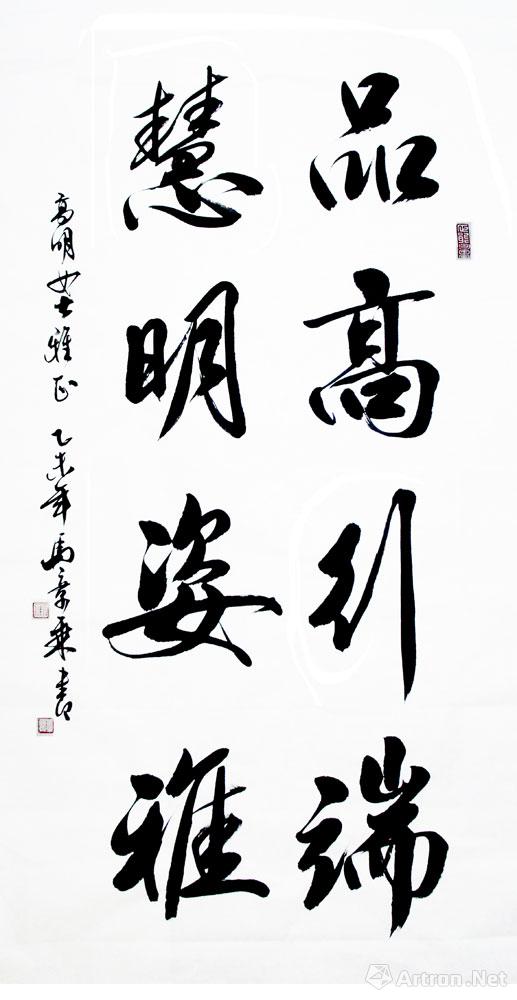 品高行端
慧明姿雅
高明女士雅正 乙未年马章乘书
Artron.Net